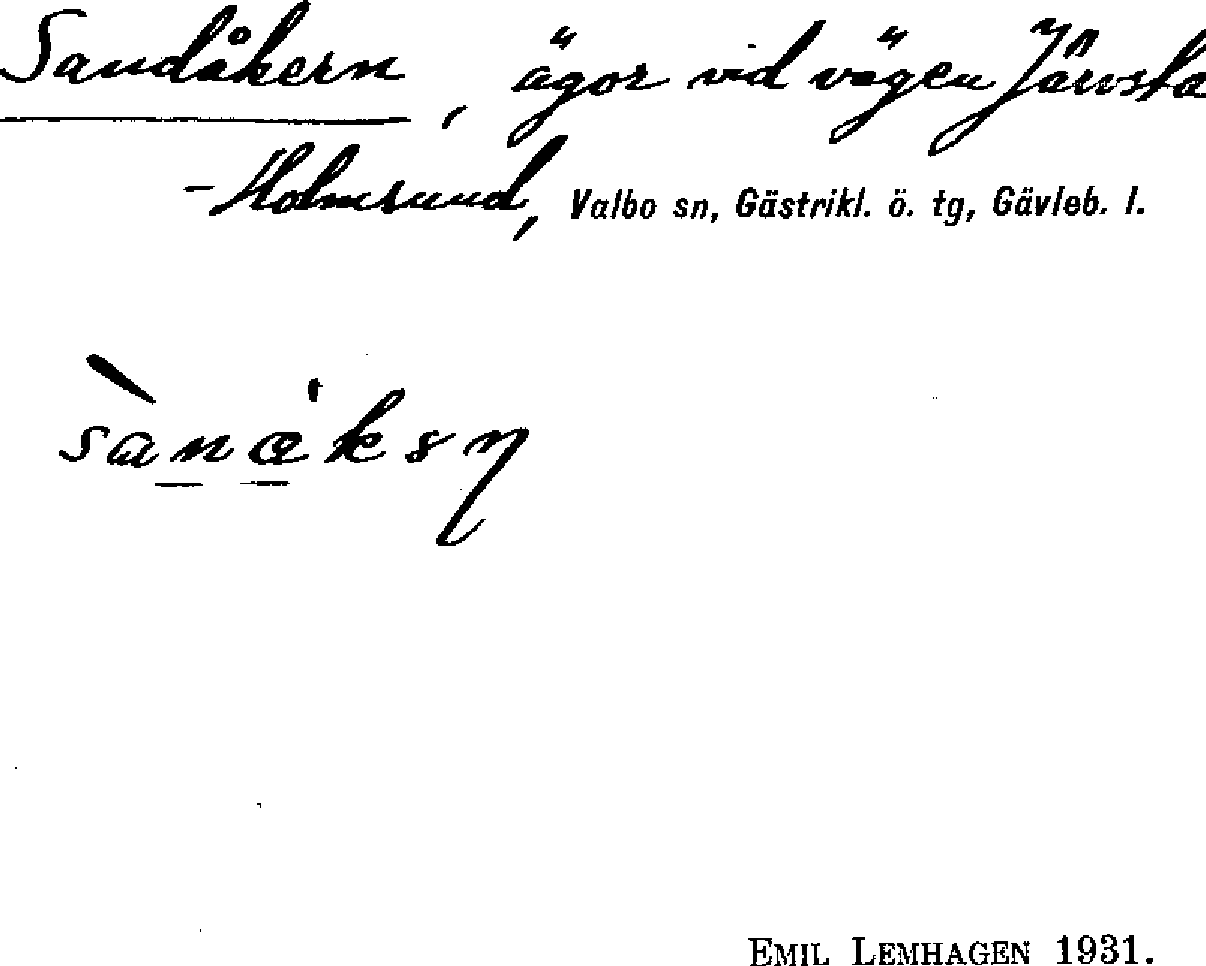 Sandåkern, ägor vid vägen Järvsta
-Holmsund, Valbo sn, Gästrikl. ö. tg, Gävleb. l.
EMIL LEMHAGEN 1931.